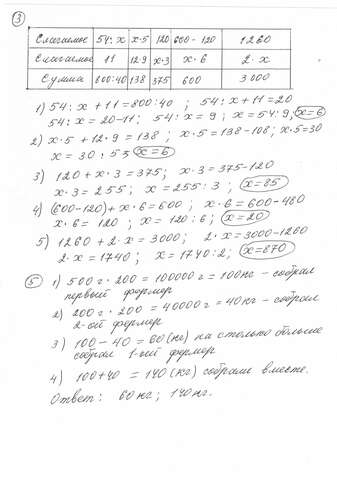 3
Слагаемое 54:x x·5 120 600-120 1260
Слагаемое 11 12·9 x·3 x·6 2·x
Сумма 800:40 138 375 600 3000
1) 54:x+11=800:40; 54:x+11=20
54:x=20-11; 54:x=9; x=54:9; x=6
2) x·5+12·9=138; x·5=138-108; x·5=30
x=30:5; x=6
3) 120+x·3=375; x·3=375-120
x·3=255; x=255:3; x=85
4) (600-120)+x·6=600; x·6=600-480
x·6=120; x=120:6; x=20
5) 1260+2·x=3000; 2·x=3000-1260
2·x=1740; x=1740:2; x=870
5 1) 500г·200=100000г=100кг-собрал
первый фермер
2) 200г·200=40000г=40кг-собрал
2-ой фермер
3) 100-40=60(кг) на столько больше
собрал 1-ый фермер
4) 100+40=140(кг) собрали вместе.
Ответ: 60кг; 140кг.